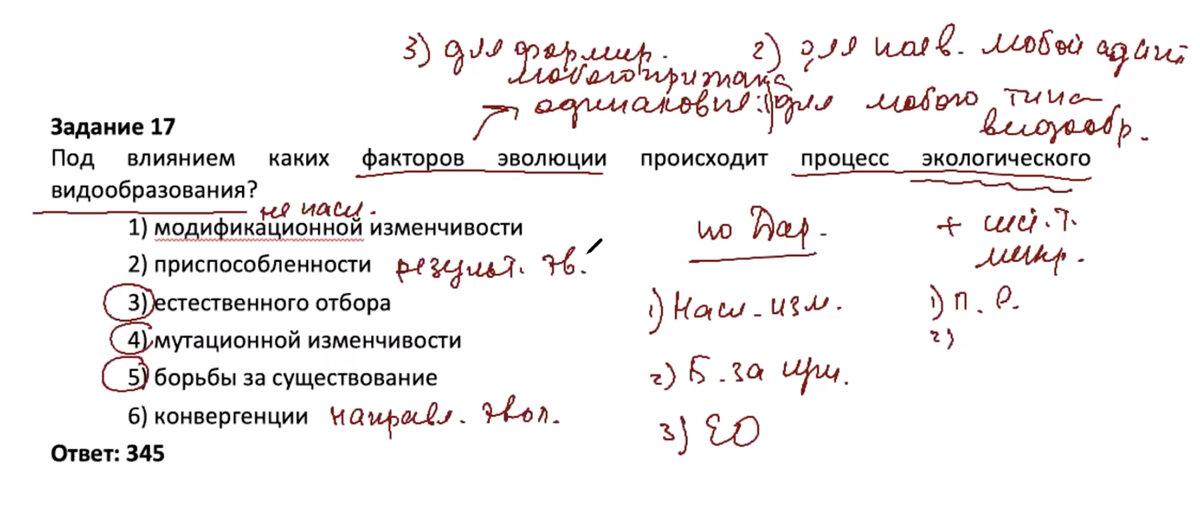 3) для формир. 2) для появ. любой адапт.
любого признака
одинаковые: 1) для любого типа
видообр.
Задание 17
Под влиянием каких факторов эволюции происходит процесс экологического
видообразования?
не насл.
1) модификационной изменчивости по Дар. + изол.
2) приспособленности результ. эв.
3) естественного отбора 1) Насл. изм. 1) П. В.
4) мутационной изменчивости 2)
5) борьбы за существование 2) Б. за
6) конвергенции направл. эвол. 3) ЕО
Ответ: 345